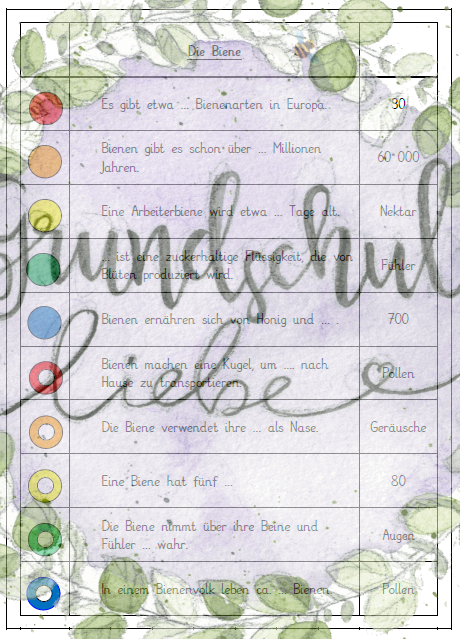 Die Biene
Es gibt etwa ... Bienenarten in Europa. 30
Bienen gibt es schon über ... Millionen 60 000
Jahren.
Eine Arbeiterbiene wird etwa ... Tage alt. Nektar
... ist eine zuckerhaltige Flüssigkeit, die von Fühler
Blüten produziert wird.
Bienen ernähren sich von Honig und ... . 700
Bienen machen eine Kugel, um .... nach Pollen
Hause zu transportieren.
Die Biene verwendet ihre ... als Nase. Geräusche
Eine Biene hat fünf ... 80
Die Biene nimmt über ihre Beine und Augen
Fühler ... wahr.
In einem Bienenvolk leben ca. ... Bienen. Pollen
grundschul
liebe